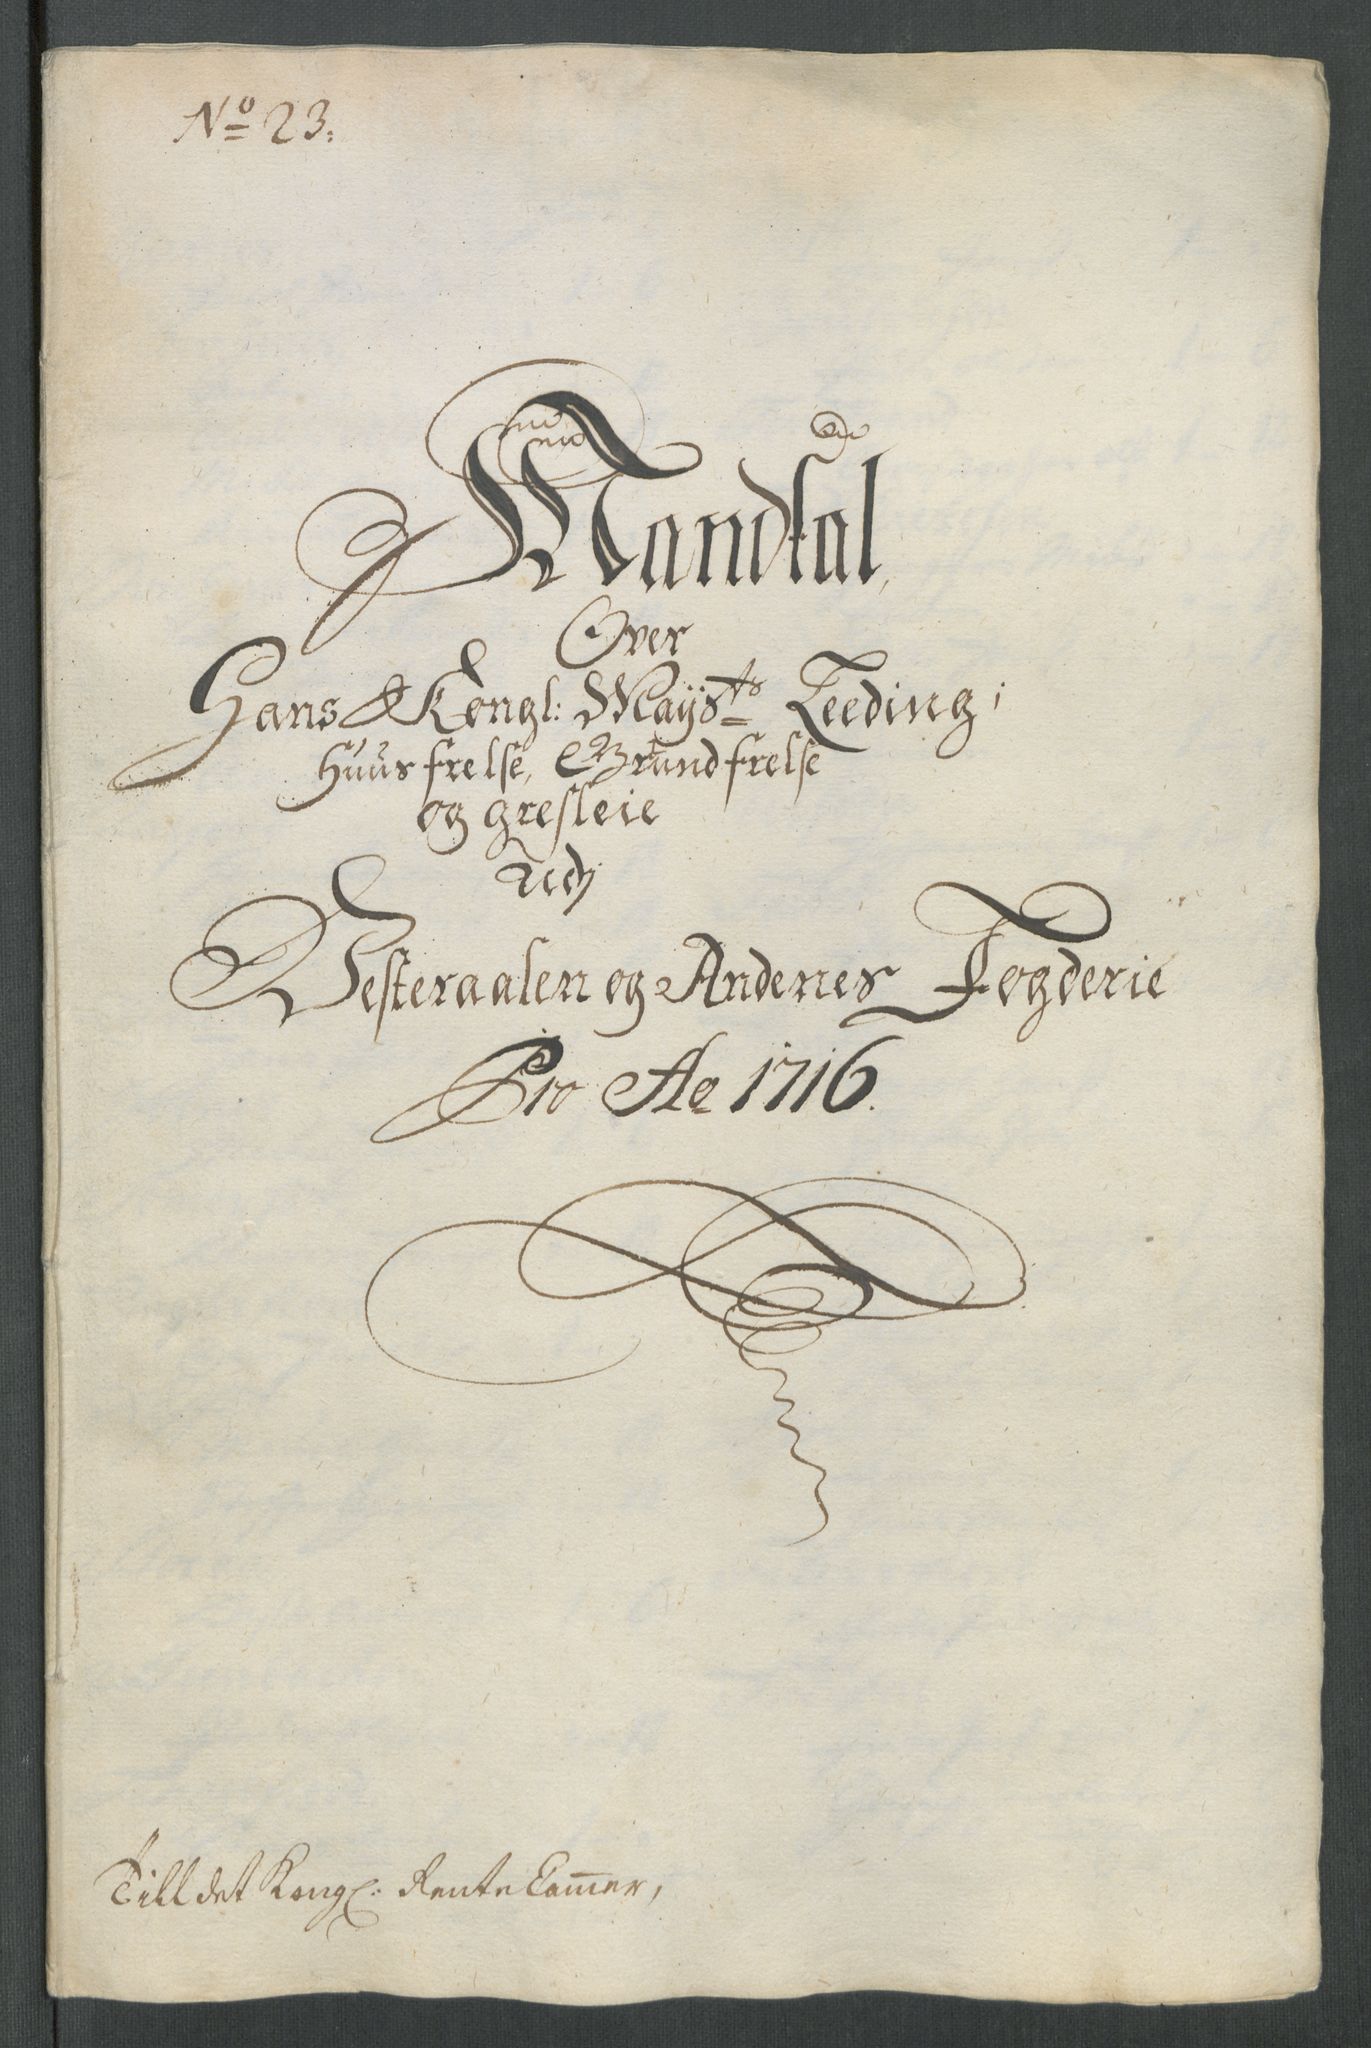 No 23.
Mandtal,
Over
Hans Kongl: Mayts Leeding,
Huusfrelse, Grundfrelse
og gresleie
Udj
Westeraalen og Andenes Fogderie
Pro Ao 1716.
Till det Kongl: Rente Cammer,